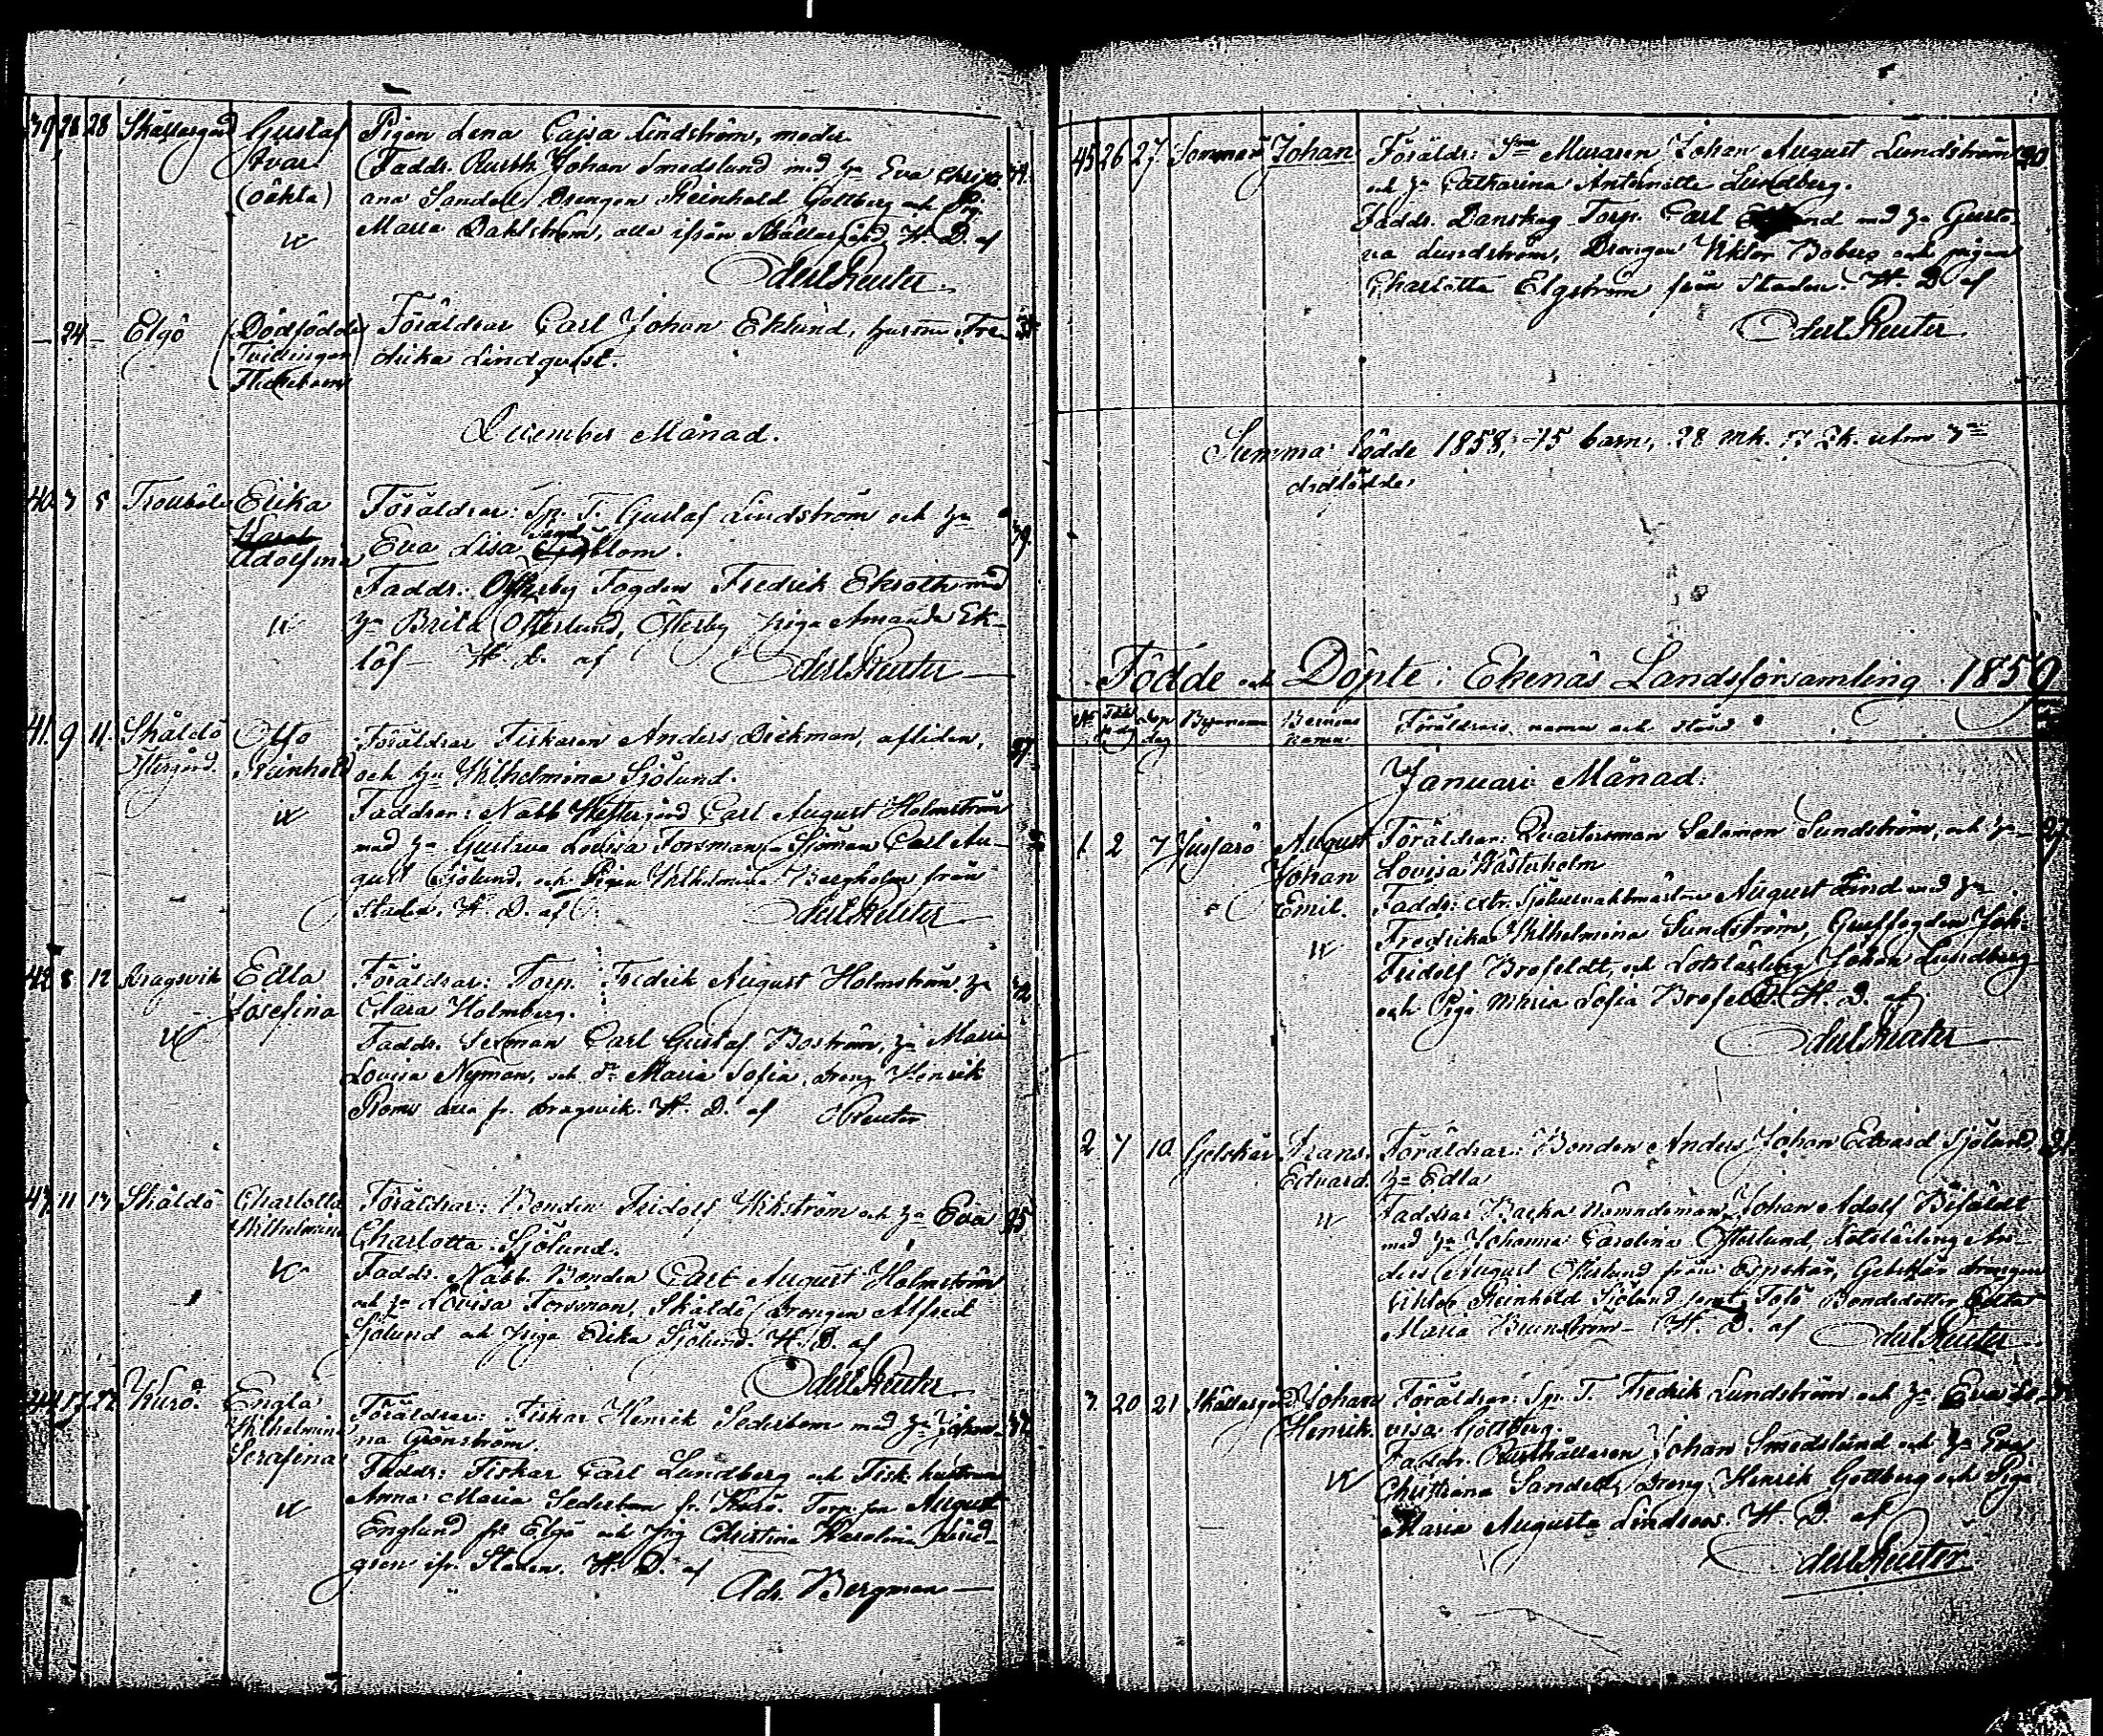 39 28 28 Skällargård Gustaf Pigen Lena Cajsa Lindström, moder
Ivar Faddr. Rusth. Johan Smedslund med h:u Eva Christi 34.
(oäkta) ana Sandell, Drengen Reinhold Gottberg och P.
Maria Dahlström, alla ifrån Skällargård H. D. af
Osterl. Reuter
— 24 — Elgö (Dödfödde Föräldrar Carl Johan Eklund, hustru Fre-
Tvillingen drika Lindqvist.
Flickebarn)
December Månad.
40. 3 5 Trollböle Erika Föräldrar: Sp. T. Gustaf Lindström och h:u
Eva Lisa Sandblom. 39.
Adolfina
Faddr. Österby Fogden Fredrik Ekroth med
h:u Brita Österlund, Österby piga Amanda Ek-
löf — H. D. af Reuter
41. 9 11. Skåldö Otto Föräldrar Fiskaren Anders Dickman, afliden,
Östergård. Reinhold och h:u Wilhelmina Sjölund. 37
Faddrar: Nabb Westergård Carl August Holmström
med h:u Gustava Lovisa Forsman, Sjöman Carl Au-
gust Sjölund, och Pigan Wilhelmina Bergholm från
staden. H. D. af Reuter
42 8 12 Dragsvik Edla Föräldrar: Torp. Fredrik August Holmström h:u
Josefina Clara Holmberg.
Faddr. Sexman Carl Gustaf Boström, h:u Maria
Lovisa Nyman, och d:r Maria Sofia, dreng Henrik
Roms alla fr. Dragsvik. H. D. af Reuter
43. 11 13 Skåldö Charlotta Föräldrar: Bonden Fridolf Wikström och h:u Eva 25
Wilhelmina Charlotta Sjölund.
Faddr. Nabb. Bonden Carl August Holmström
och h:u Lovisa Forsman, Skåldö Drengen Alfred
Sjölund och piga Erika Sjölund. H. D. af
Reuter
44 17 27 Kurö. Engla Föräldrar: Fiskar Henrik Söderbom med h:u Johan-
Wilhelmina na Grönström.
Serafina Faddr: Fiskar Carl Lundberg och Fisk. hustrun
Anna Maria Sederbom fr. Kurö. Torp. son August
Englund fr. Elgö och pig Christina Karolina Lind-
gren ifr. Staden. H. D. af
Adr. Bergman
45 26 27 Sommarö Johan Föräldr: Muraren Johan August Lundström 30
och h:u Catharina Antoinette Lundberg.
Faddr. Danskog Torp. Carl med h:u Gusta-
va Lundström, Drengen Viktor Boberg och pigan
Charlotta Elgström från Staden. H. D. af
Reuter
Summa födde 1858, 45 barn, 28 mk. 17 Qk. utom 3:ne
dödfödde.
Födde och Döpte i Ekenäs Landsförsamling 1859
No Född dag Dop dag Bynamn Barnens namn Föräldrars namn och stånd
Januari Månad.
1. 2 7 Jussarö August Föräldrar: Quartersman Salomon Sundström, och h:u 27
Johan Lovisa Wästerholm
Emil. Faddr: extr. Sjötullvaktmästare August Lind med h:u
Fredrika Wilhelmina Sundström, Gruffogden Joh.
Fridolf Brofeldt, och Lotslärling Johan Lundberg
och Piga Maria Sofia Brofeldt. H. D. af
Reuter
2 7 10. Gölskär Frans Föräldrar: Bonden Anders Johan Edvard Sjölund,
Edvard h:u Edla
Faddrar Backa Nämndeman Johan Adolf
med h:u Johanna Carolina Österlund, Lotslärling An-
ders August Österlund från Espskär, Gölskär drengen
Viktor Reinhold Sjölund samt Tolö Bondedotter Edla
Maria Brunström — H. D. af Reuter
3. 20 21 Skällargård Johan Föräldrar: Sp. T. Fredrik Lundström och h:u Eva Lo-
Henrik visa Gottberg.
Faddr. Rusthållaren Johan Smedslund och h:u Eva
Christiana Sandell, dreng Henrik Gottberg och Piga
Maria Augusta Lindroos. H. D. af
Reuter